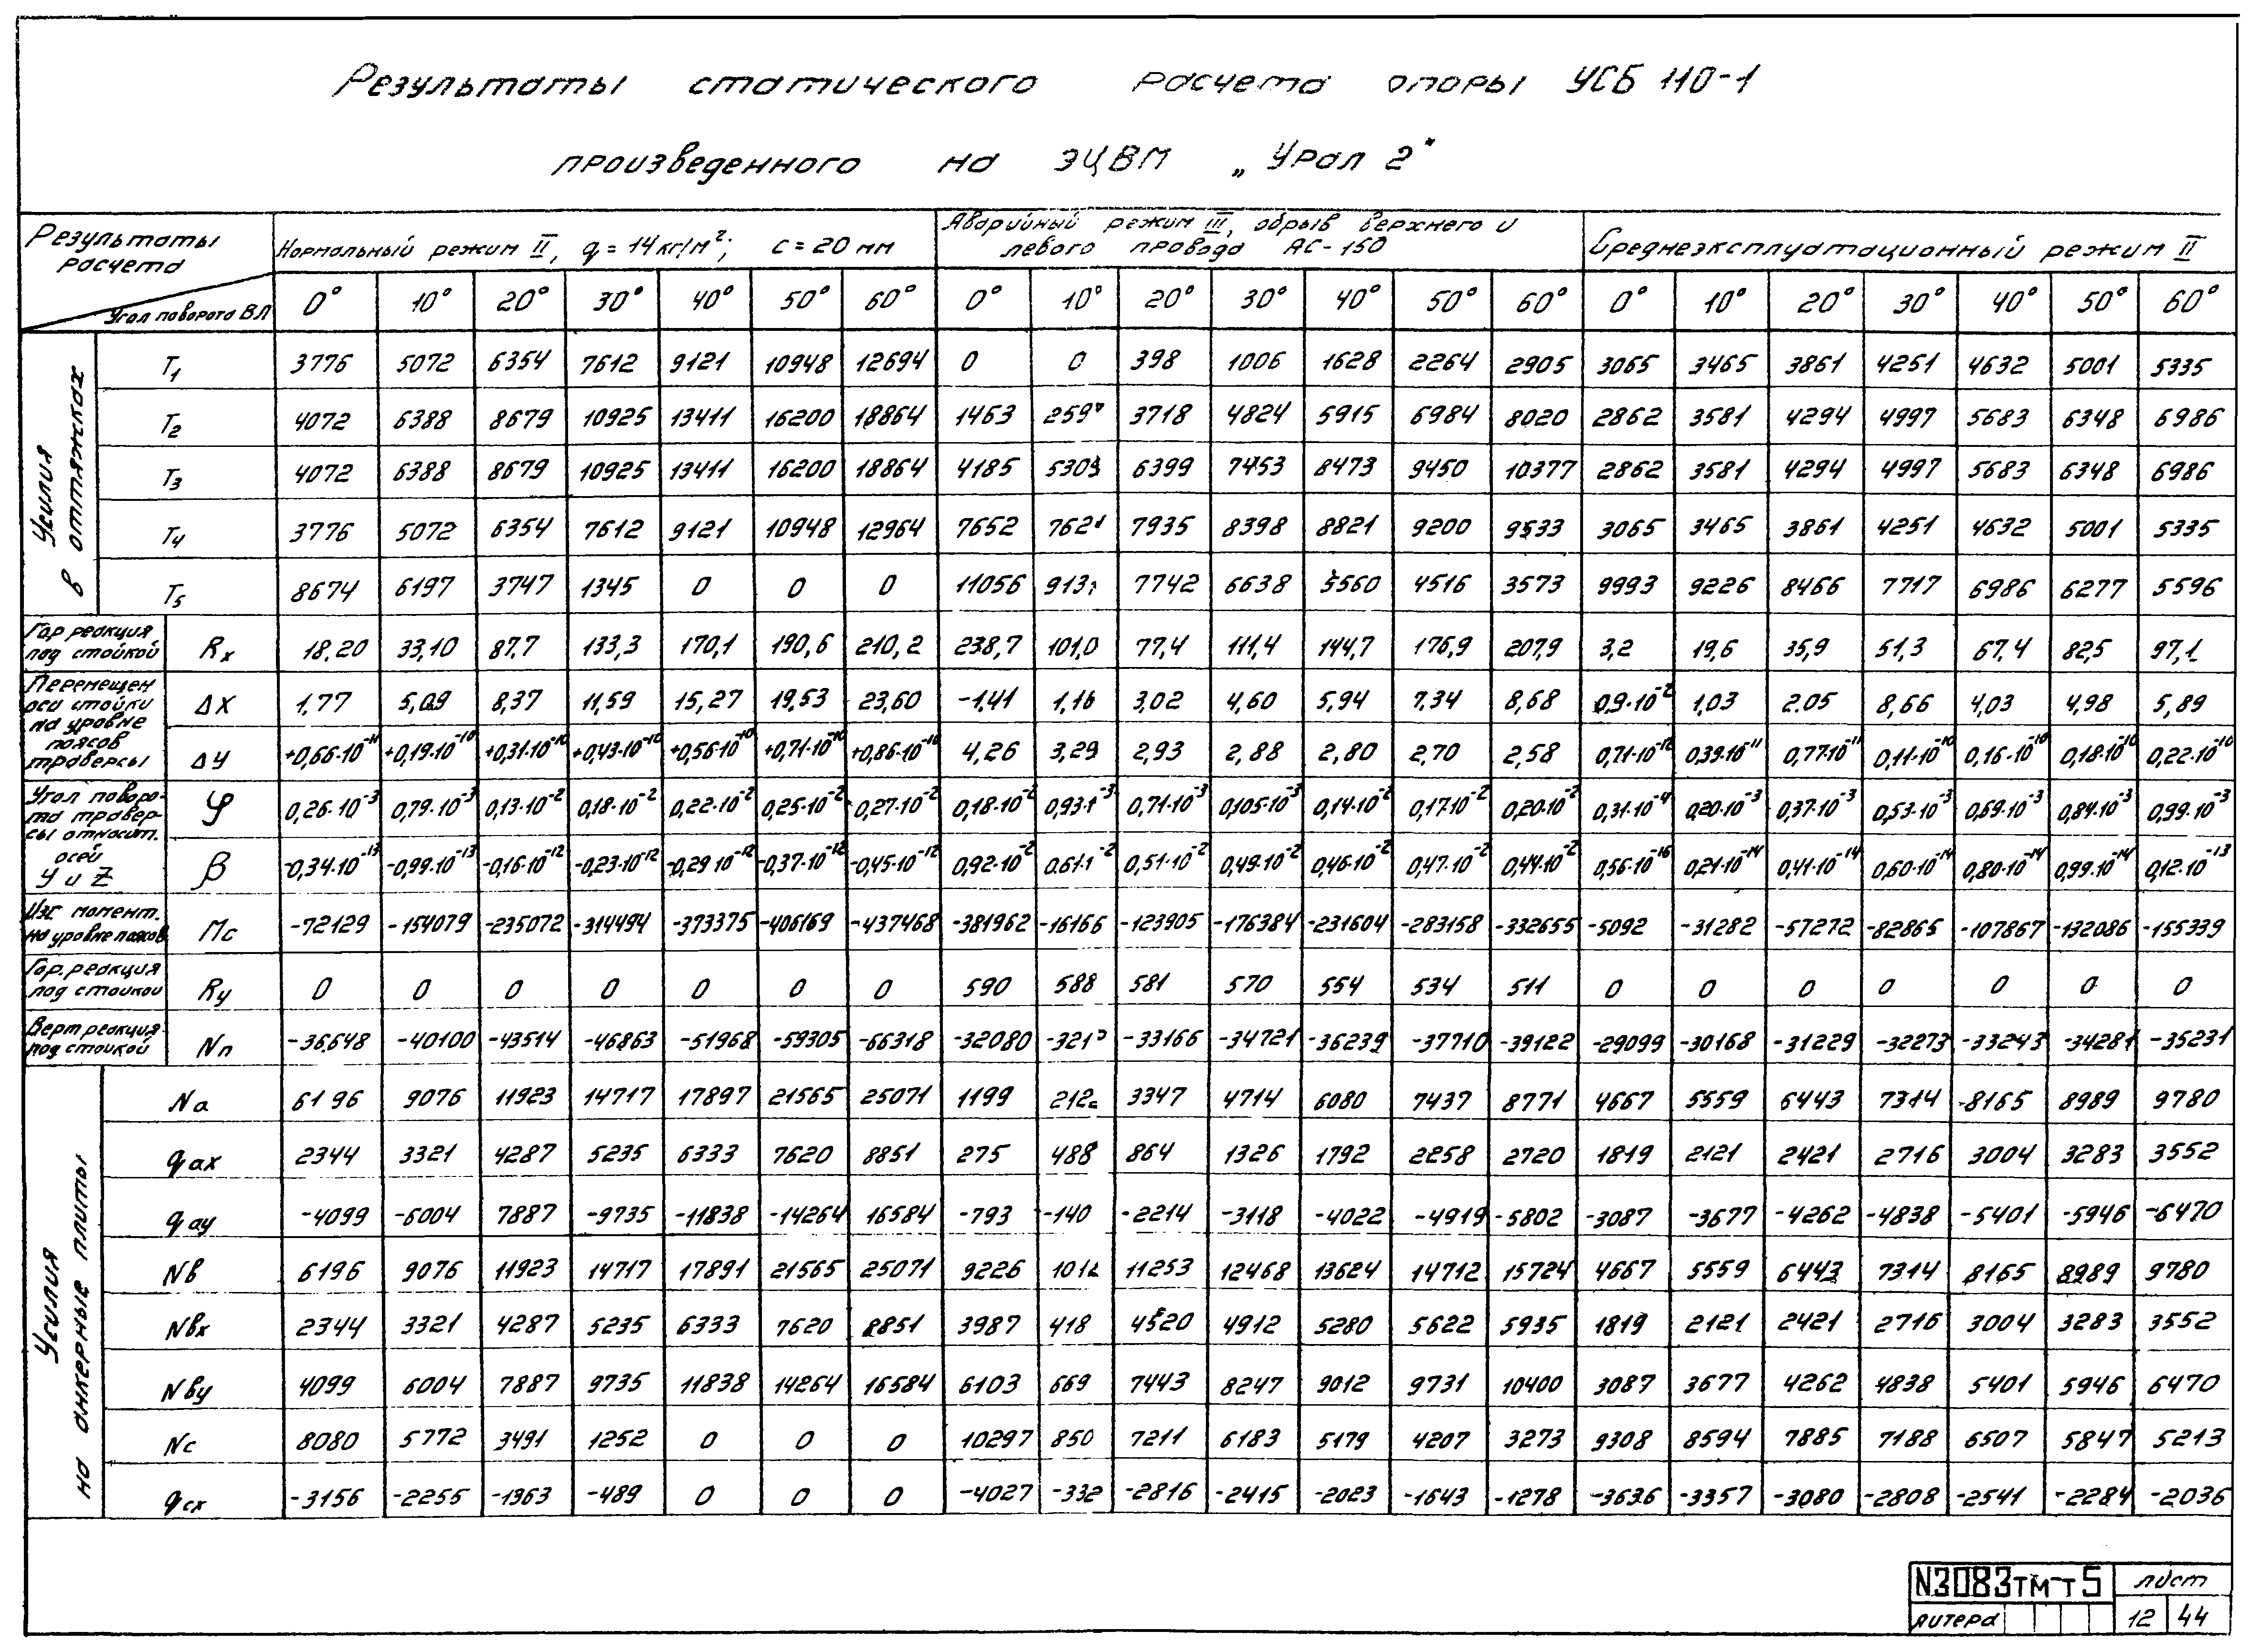 Результаты статического расчета опоры УСБ 110-1
произведенного на ЭЦВМ „Урал 2"
Результаты расчета
Угол поворота ВЛ
Нормальный режим II, q = 14 кг/м²; c = 20 мм
Аварийный режим III, обрыв верхнего и левого провода АС-150
Среднеэксплуатационный режим II
0° 10° 20° 30° 40° 50° 60° 0° 10° 20° 30° 40° 50° 60° 0° 10° 20° 30° 40° 50° 60°
Усилия в оттяжках
T1 3776 5072 6354 7612 9121 10948 12694 0 0 398 1006 1628 2264 2905 3065 3465 3861 4251 4632 5001 5335
T2 4072 6388 8679 10925 13411 16200 18864 1463 259 3718 4824 5915 6984 8020 2862 3581 4294 4997 5683 6348 6986
T3 4072 6388 8679 10925 13411 16200 18864 4185 5303 6399 7453 8473 9450 10377 2862 3581 4294 4997 5683 6348 6986
T4 3776 5072 6354 7612 9121 10948 12964 7652 762 7935 8398 8821 9200 9533 3065 3465 3861 4251 4632 5001 5335
T5 8674 6197 3747 1345 0 0 0 11056 913 7742 6638 5560 4516 3573 9993 9226 8466 7717 6986 6277 5596
Гор реакция под стойкой
Rx 18,20 33,10 87,7 133,3 170,1 190,6 210,2 238,7 101,0 77,4 111,4 144,7 176,9 207,9 3,2 19,6 35,9 51,3 67,4 82,5 97,1
Перемещен оси стойки на уровне поясов траверсы
ΔX 1,77 5,09 8,37 11,59 15,27 19,53 23,60 -1,41 1,16 3,02 4,60 5,94 7,34 8,68 0,9·10⁻² 1,03 2.05 8,66 4,03 4,98 5,89
ΔУ +0,66·10⁻¹¹ +0,19·10⁻¹⁰ +0,31·10⁻¹⁰ +0,43·10⁻¹⁰ +0,56·10⁻¹⁰ +0,71·10⁻¹⁰ +0,86·10⁻¹⁰ 4,26 3,29 2,93 2,88 2,80 2,70 2,58 0,71·10⁻¹² 0,39·10⁻¹¹ 0,77·10⁻¹¹ 0,11·10⁻¹⁰ 0,16·10⁻¹⁰ 0,18·10⁻¹⁰ 0,22·10⁻¹⁰
Угол поворота траверсы относит. осей У и Z
φ 0,26·10⁻³ 0,79·10⁻³ 0,13·10⁻² 0,18·10⁻² 0,22·10⁻² 0,25·10⁻² 0,27·10⁻² 0,18·10⁻² 0,93·1⁻³ 0,71·10⁻³ 0,105·10⁻³ 0,14·10⁻² 0,17·10⁻² 0,20·10⁻² 0,31·10⁻⁴ 0,20·10⁻³ 0,37·10⁻³ 0,53·10⁻³ 0,69·10⁻³ 0,84·10⁻³ 0,99·10⁻³
β -0,34·10⁻¹³ -0,99·10⁻¹³ -0,16·10⁻¹² -0,23·10⁻¹² -0,29·10⁻¹² -0,37·10⁻¹² -0,45·10⁻¹² 0,92·10⁻² 0.61·1⁻² 0,51·10⁻² 0,49·10⁻² 0,46·10⁻² 0,47·10⁻² 0,44·10⁻² 0,56·10⁻¹⁶ 0,21·10⁻¹⁴ 0,41·10⁻¹⁴ 0,60·10⁻¹⁴ 0,80·10⁻¹⁴ 0,99·10⁻¹⁴ 0,12·10⁻¹³
Изг момент. на уровне поясов
Mc -72129 -154079 -235072 -314494 -373375 -406169 -437468 -381962 -16166 -123905 -176384 -231604 -283158 -332655 -5092 -31282 -57272 -82865 -107867 -132086 -155339
Гор. реакция под стойкой
Ry 0 0 0 0 0 0 0 590 588 581 570 554 534 511 0 0 0 0 0 0 0
Верт реакция под стойкой
Nп -36648 -40100 -43514 -46863 -51968 -59305 -66318 -32080 -321 -33166 -34721 -36239 -37710 -39122 -29099 -30168 -31229 -32273 -33243 -34281 -35231
Усилия на анкерные плиты
Na 6196 9076 11923 14717 17897 21565 25071 1199 212 3347 4714 6080 7437 8771 4667 5559 6443 7314 8165 8989 9780
qax 2344 3321 4287 5235 6333 7620 8851 275 488 864 1326 1792 2258 2720 1819 2121 2421 2716 3004 3283 3552
qay -4099 -6004 7887 -9735 -11838 -14264 16584 -793 -140 -2214 -3118 -4022 -4919 -5802 -3087 -3677 -4262 -4838 -5401 -5946 -6470
Nв 6196 9076 11923 14717 17891 21565 25071 9226 101 11253 12468 13624 14712 15724 4667 5559 6443 7314 8165 8989 9780
Nвx 2344 3321 4287 5235 6333 7620 8851 3987 418 4520 4912 5280 5622 5935 1819 2121 2421 2716 3004 3283 3552
Nвy 4099 6004 7887 9735 11838 14264 16584 6103 669 7443 8247 9012 9731 10400 3087 3677 4262 4838 5401 5946 6470
Nc 8080 5772 3491 1252 0 0 0 10297 850 7211 6183 5179 4207 3273 9308 8594 7885 7188 6507 5847 5213
qcx -3156 -2255 -1363 -489 0 0 0 -4027 -332 -2816 -2415 -2023 -1643 -1278 -3636 -3357 -3080 -2808 -2541 -2284 -2036
N3083тм-т5 лист
литера 12 44